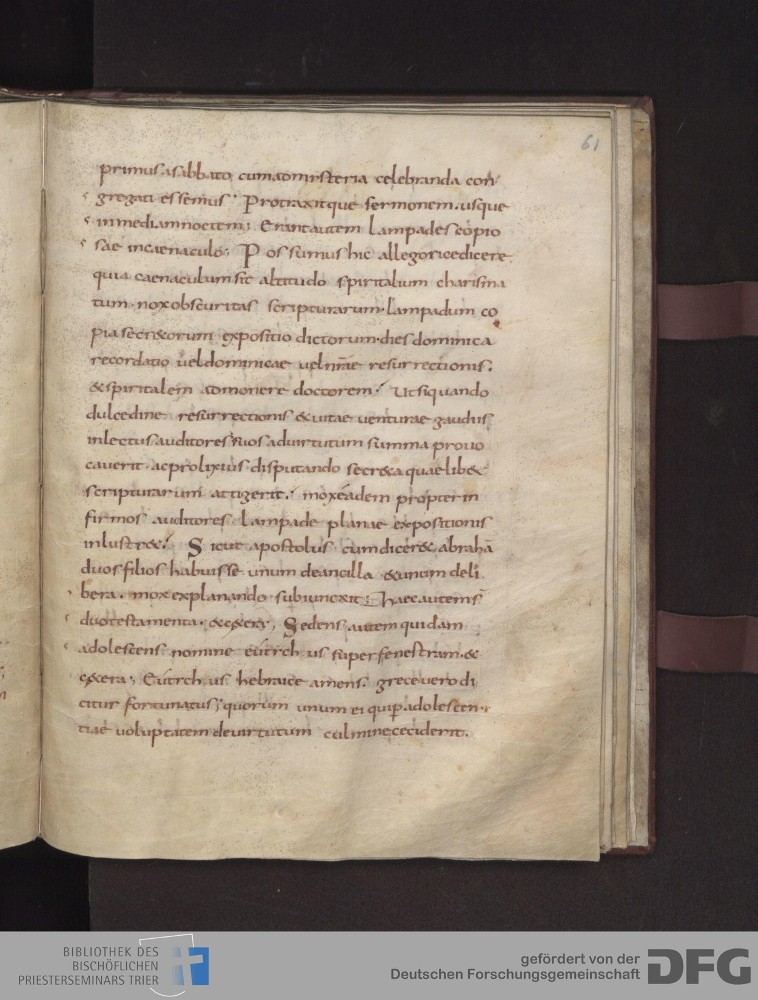 61
primus a sabbato cum ad mysteria celebranda con
gregati essemus. Protraxitque sermonem usque
in mediam noctem; Erant autem lampades copio
sae in caenaculo; Possumus hic allegorice dicere
quia caenaculum sit altitudo spiritalium charisma
tum. nox obscuritas scripturarum. lampadum co
pia secr&orum expositio dictorum. dies dominica
recordatio vel dominicae vel nr̄ae resurrectionis.
& spiritalem admonere doctorem. Ut si quando
dulcedine resurrectionis & vitae venturae gaudiis
inlectus auditores suos ad virtutum summa provo
caverit. ac prolixius disputando secr&a quaelib&
scripturarum attigerit. mox eadem propter in
firmos auditores lampade planae expositionis
inlustr&. Sicut apostolus cum dicer& abrahā
duos filios habuisse unum de ancilla & unum de li
bera. mox explanando subiunxit; Haec autem s̄
duo testamenta. & c&era; Sedens autem quidam
adolescens nomine eutychus super fenestram. &
c&era; Eutychus hebraice amens. grece vero di
citur fortunatus; quorum unum ei qui p adolescen
tiae voluptatem de virtutum culmine ceciderit.
BIBLIOTHEK DES
BISCHÖFLICHEN
PRIESTERSEMINARS TRIER
gefördert von der
Deutschen Forschungsgemeinschaft
DFG